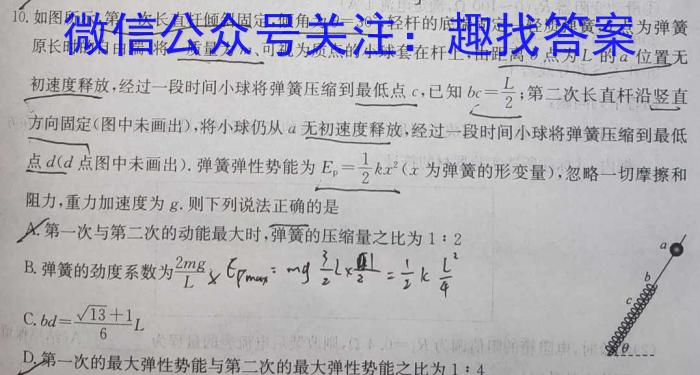 10. 如图所示,第一次长直杆倾斜固定,倾角 θ=30° 轻杆的底 固定 轻质弹簧 b点为弹簧
微信公众号关注：趣找答案
原长时的自由端,将一质量为m、可视为质点的小球套在杆上,由距离b点为L的a位置无
初速度释放,经过一段时间小球将弹簧压缩到最低点 c,已知 bc=L/2;第二次长直杆沿竖直
方向固定(图中未画出),将小球仍从 a 无初速度释放,经过一段时间小球将弹簧压缩到最低
点 d(d 点图中未画出). 弹簧弹性势能为 Eₚ=1/2kx²(x 为弹簧的形变量),忽略一切摩擦和
阻力,重力加速度为 g. 则下列说法正确的是
A. 第一次与第二次的动能最大时,弹簧的压缩量之比为 1∶2
B. 弹簧的劲度系数为 2mg/L × Epmax = mg 3/2 L × = 1/2 k L²/4
C. bd=(√13+1)/6 L
D. 第一次的最大弹性势能与第二次的最大弹性势能之比为 1∶4
a
b
c
θ